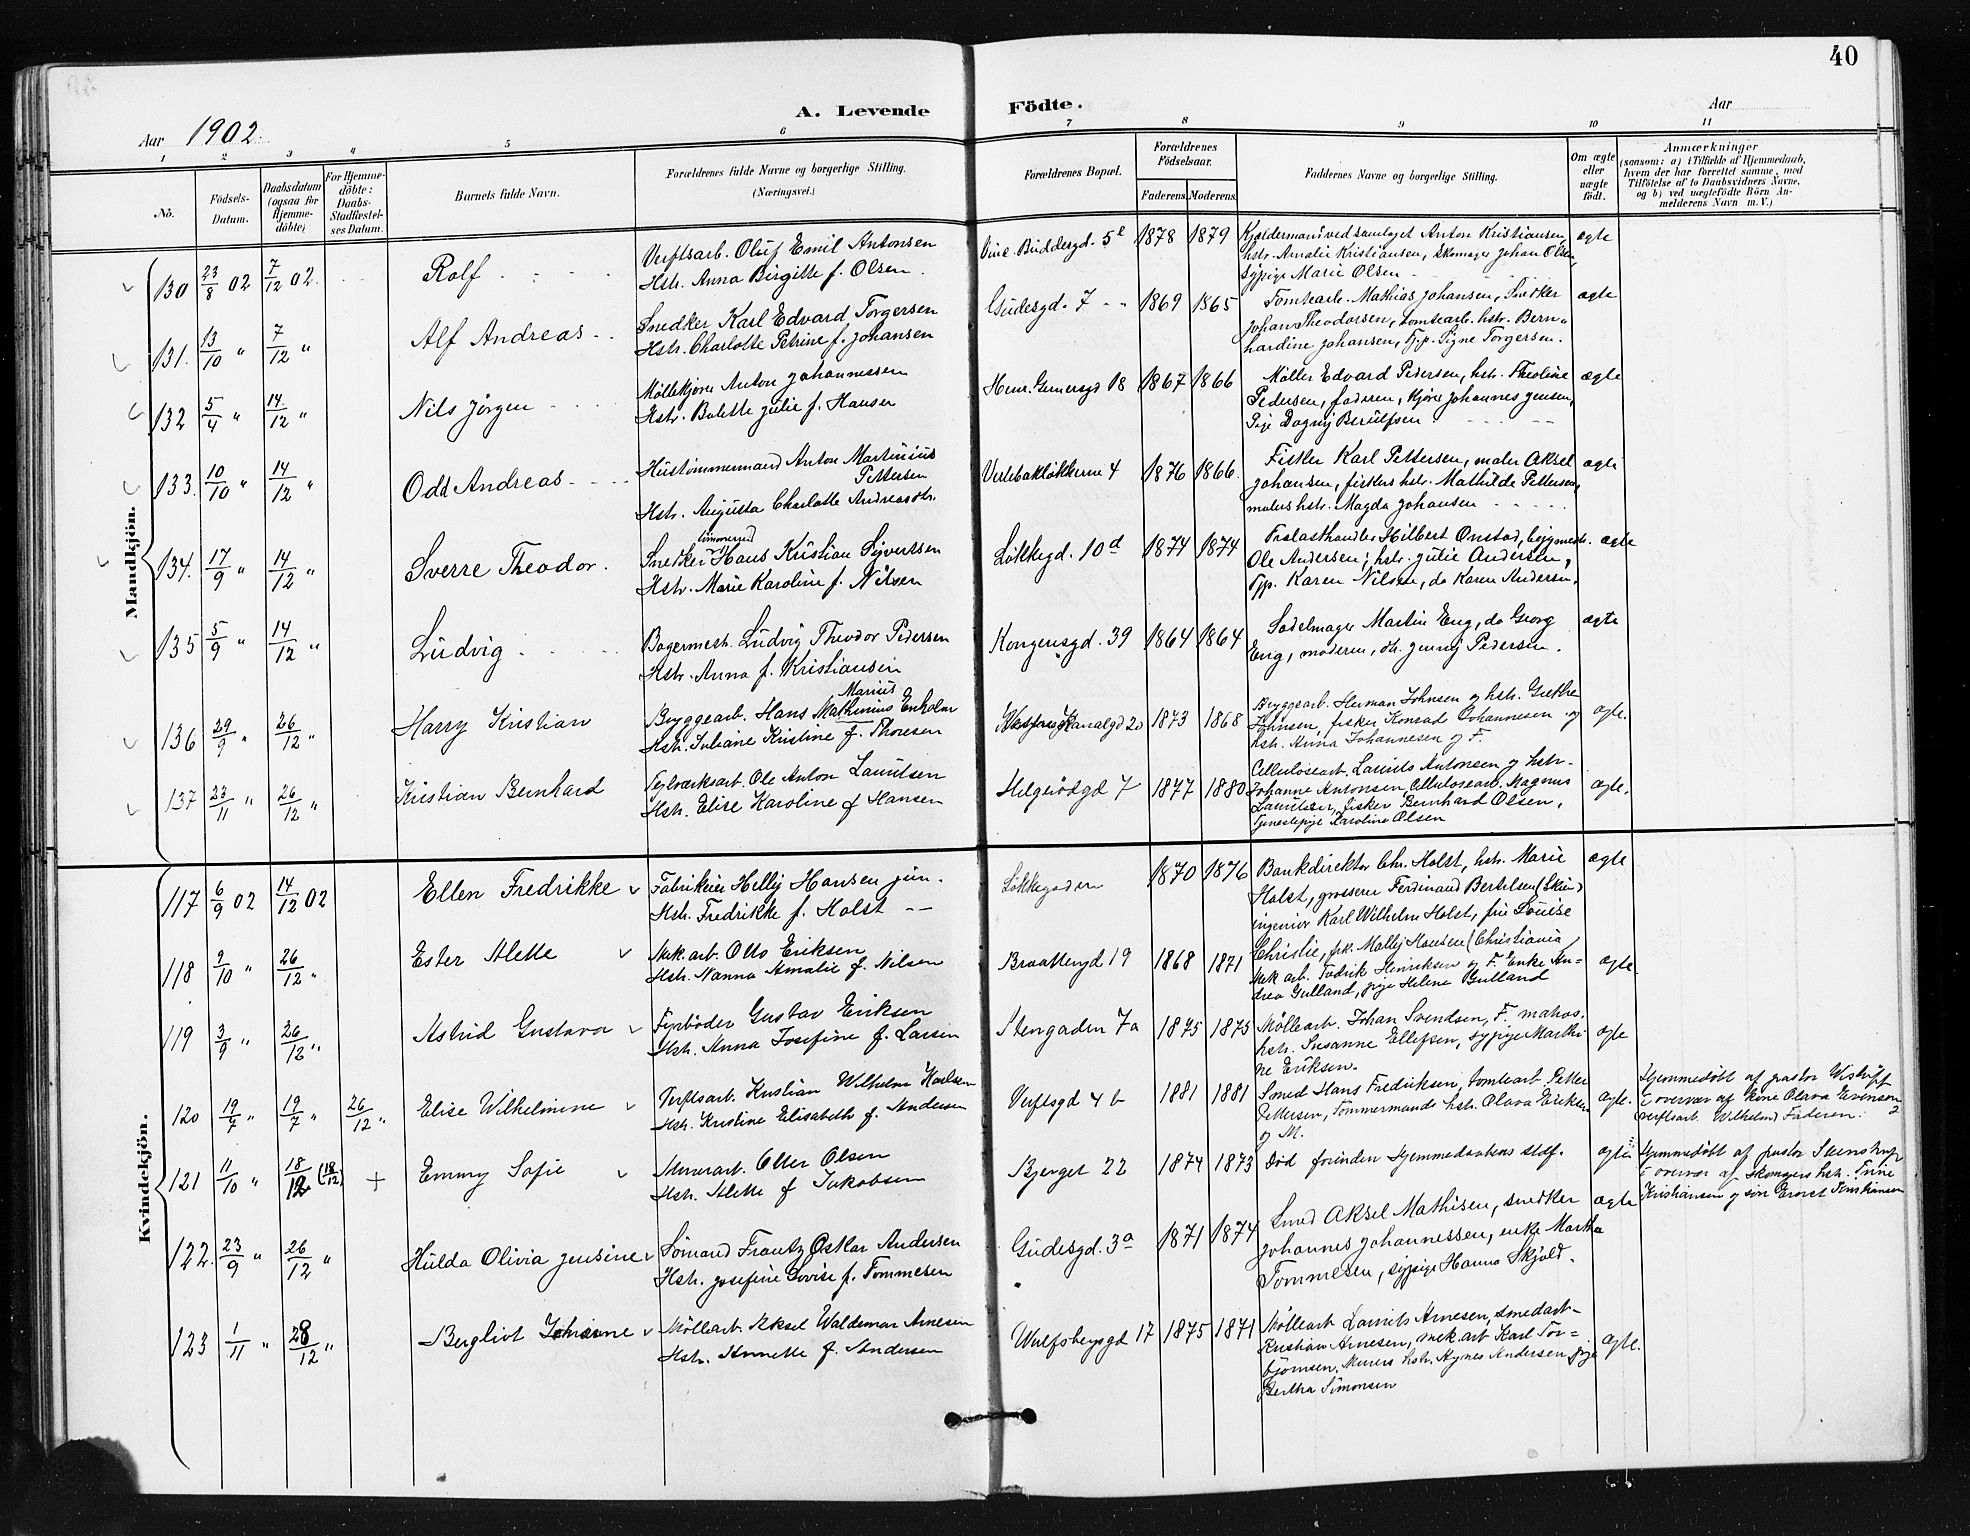 40
A. Levende Födte.
Aar 1902.
Aar
1 2 3 4 5 6 7 8 9 10 11
No.
Födsels-Datum.
Daabsdatum (ogsaa for Hjemmedöbte)
For Hjemmedöbte: Daabs-Stadfæstelses Datum.
Barnets fulde Navn.
Forældrenes fulde Navne og borgerlige Stilling. (Næringsvei.)
Forældrenes Bopæl.
Forældrenes Födselsaar.
Faderens. Moderens.
Faddernes Navne og borgerlige Stilling.
Om ægte eller uægte födt.
Anmærkninger
(saasom: a) i Tilfælde af Hjemmedaab, hvem der har forrettet samme, med Tilföielse af to Daabsvidners Navne, og b) ved uægtefödte Börn Anmelderens Navn m. V.)
Mandkjön.
130 23/8 02 7/12 02 Rolf
Verftsarb. Oluf Emil Antonsen
Hstr. Anna Birgitte f. Olsen.
Vinc. Buddesgd. 5e 1878 1879
Kjeldermand ved samlaget Anton Kristiansen,
hstr. Amalie Kristiansen, skomager Johan Olsen,
sypige Marie Olsen
ægte
131. 13/10 " 7/12 " Alf Andreas
Snedker Karl Edvard Torgersen
Hstr. Charlotte Petrine f. Johansen
Gudesgd. 7 1869 1865
Tomtearb. Mathias Johansen, Snedker
Johan Theodorsen, tomtearb. hstr. Bern-
hardine Johansen, Tj.p. Signe Torgersen.
ægte
132 5/4 " 14/12 " Nils Jörgen
Möllekjörer Anton Johannessen
Hstr. Bolette Julie f. Hansen
Henr. Gernersgd 18 1867 1866
Möller Edvard Pedersen, hstr. Theoline
Pedersen, faderen, kjörer Johannes Jensen,
Pige Dagny Berulfsen
ægte
133. 10/10 " 14/12 " Odd Andreas
Hustömmermand Anton Martinius
Pettersen
Hstr. Augusta Charlotte Andreasdtr.
Verlebaklökkerne 4 1876 1866.
Fisker Karl Pettersen, maler Aksel
Johansen, fiskers hstr. Mathilde Pettersen,
malers hstr. Magda Johansen
ægte
134. 17/9 " 14/12 " Sverre Theodor.
Snedker Hans Kristian Syvertsen
Hstr. Marie Karoline f. Nilsen
Lökkegd. 10d 1874 1874
Trælasthandler Hilbert Onstad, bygmest.
Ole Andersen, hstr. Julie Andersen,
Tjp. Karen Nilsen, do Karen Andersen.
ægte
135 5/9 " 14/12 " Ludvig
Bagermestr. Ludvig Theodor Pedersen
Hstr. Anna f. Kristiansen
Kongensgd. 39 1864 1864
Sadelmager Martin Eng, do Georg
Eng, moderen, dtr. Jenny Pedersen.
ægte
136 29/9 " 26/12 " Harry Kristian
Marius
Bryggearb. Hans Mathinius Enholm
Hstr. Juliane Kristine f. Thoresen
Kanalgd 20 1873 1868
Bryggearb. Herman Johnsen og hstr. Grethe
Johnsen, fisker Konrad Johannesen og
hstr. Anna Johannesen og F.
ægte.
137 23/11 " 26/12 " Kristian Bernhard
Teglverksarb. Ole Anton Lauritsen
Hstr. Elise Karoline f Hansen
Helgerödgd 7 1877 1880
Cellulosearb. Laurits Antonsen og hstr.
Johanne Antonsen Cellulosearb. Magnus
Lauritsen, fisker Bernhard Olsen,
Tjenestepige Karoline Olsen
ægte.
Kvindekjön.
117 6/9 02 14/12 02 Ellen Fredrikke
Fabrikeier Helly Hansen jun.
Hstr. Fredrikke f. Holst
Lökkegaden 1870 1876
Bankdirektör Chr. Holst, hstr. Marie
Holst, grosserer Ferdinand Bertelsen (Skien)
ingeniör Karl Wilhelm Holst, fru Louise
Christie, frk. Mally Hansen (Christiania)
ægte
118 2/10 " 26/12 " Ester Alette
Mek. arb. Otto Eriksen
Hstr. Nanna Amalie f. Nilsen
Braattengd 19 1868 1871
Mek arb. Fredrik Henriksen og F. Enke An-
drea Gulland, pige Helene Gulland
ægte.
119 3/9 " 26/12 " Astrid Gustava
Fyrböder Gustav Eriksen
Hstr. Anna Josefine f. Larsen
Stengaden 7a 1875 1875
Möllearb. Johan Svendsen, F. matros.
hstr. Susanne Ellefsen, sypige Marthi-
ne Eriksen.
ægte
120 19/7 " 19/7 " 26/12 " Elise Wilhelmine
Verftsarb. Kristian Wilhelm Karlsen
Hstr. Kristine Elisabeth f. Andersen
Verftsgd 4 b 1881 1881
Smed Hans Fredriksen, tomtearb Petter
Pettersen, Tömmermands hstr. Olava Eriksen
og M.
ægte.
Hjemmedöbt af pastor
i overvær af kone Olava Evensen
verftsarb. Wilhelm Faderen.
121 11/10 " 18/12 (18/12) + Emmy Sofie
Murerarb. Otter Olsen
Hstr. Alette f Jakobsen
Bjerget 22 1874 1873
Död forinden Hjemmedaabens stdf.
ægte
Hjemmedöbt af pastor Steenstrup
i overvær af skomagers hstr. Trine
Kristiansen og sön Ernst Kristiansen
122. 23/9 " 26/12 " Hulda Olivia Jensine
Sömand Frantz Oskar Andersen
Hstr. Josefine Lovise f. Tommesen
Gudesgd. 3a 1871 1874
Smed Aksel Mathisen, snedker
Johannes Johannessen, enke Martha
Tommesen, sypige Hanna Skjold.
ægte
123 1/11 " 28/12 " Bergliot Johanne
Möllearb. Aksel Waldemar Arnesen
Hstr. Annette f. Andersen
Wulfsbergsgd 17 1875 1871
Möllearb Laurits Arnesen, smedarb
Kristian Arnesen, mek. arb Karl Tor-
björnsen, Murers hstr. Agnes Andersen pige
Bertha Simonsen
ægte.